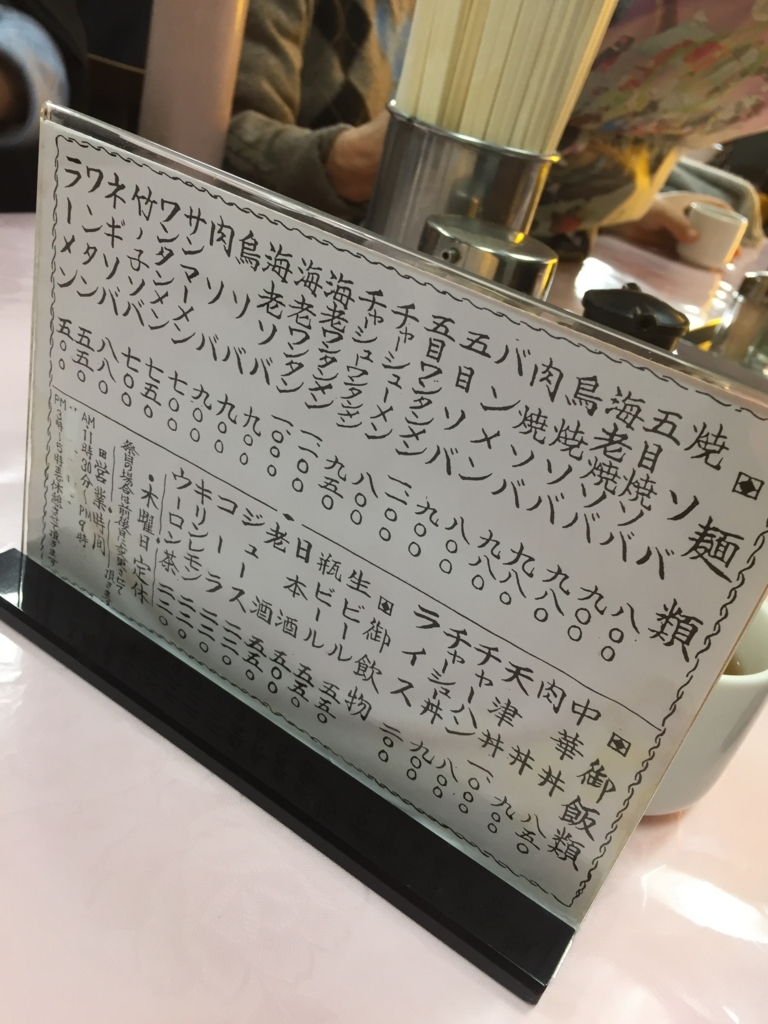 麺類
焼ソバ 八〇〇
五目焼ソバ 九〇〇
海老焼ソバ 九八〇
鳥焼ソバ 九八〇
肉焼ソバ 九八〇
バンメン 八〇〇
五目ソバ 九〇〇
五目ワンタンメン 一、一〇〇
チャーシューメン 八〇〇
チャーシューワンタンメン 九五〇
海老ワンタンメン 一、一〇〇
海老ワンタン 一、〇〇〇
海老ソバ 九〇〇
鳥ソバ 九〇〇
肉ソバ 九〇〇
サンマーメン 七〇〇
ワンタンメン 七〇〇
竹ノ子ソバ 七五〇
ネギソバ 八〇〇
ワンタン 五五〇
ラーメン 五〇〇
御飯類
中華丼 八五〇
肉丼 九〇〇
天津丼 一、〇〇〇
チャーハン 八〇〇
チャーシュー丼 九〇〇
ライス 二〇〇
御飲物
生ビール 五五〇
瓶ビール 五五〇
日本酒 五〇〇
老酒 五五〇
ジュース 二二〇
コーラ 二二〇
キリンレモン 二二〇
ウーロン茶 二二〇
・木曜日定休
営業時間
AM 11時30分〜PM 9時